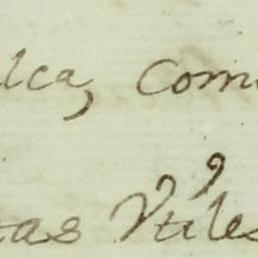 lca, com
tas Vtiles